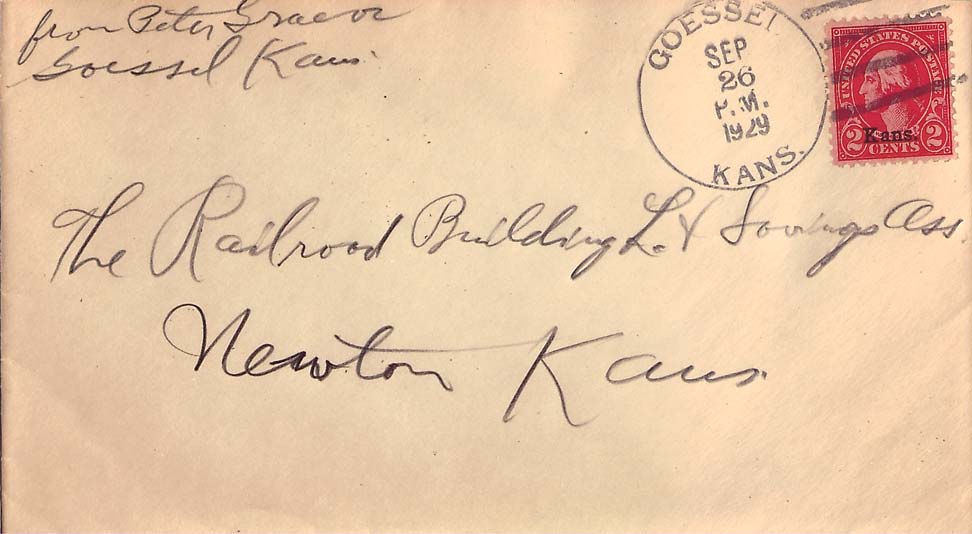 from Peter Graeve
Goessel Kans.
GOESSEL
SEP
26
P.M.
1929
KANS.
UNITED STATES POSTAGE
Kans.
2 CENTS 2
The Railroad Building L. & Savings Ass
Newton Kans.